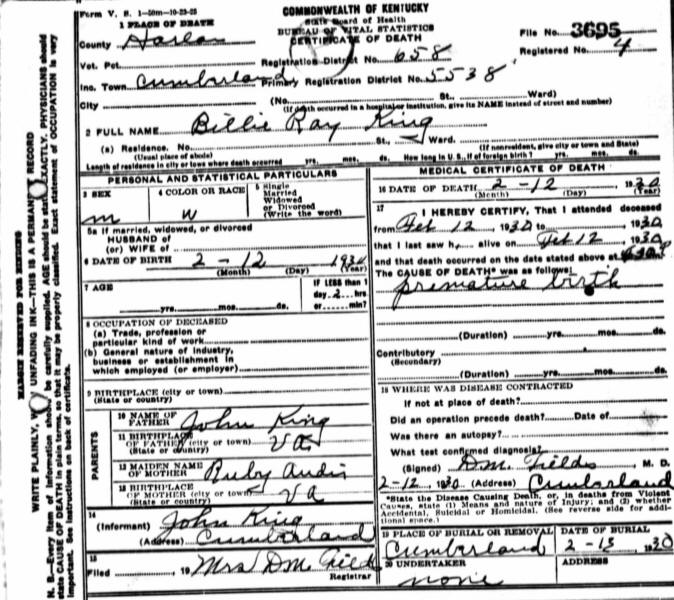 Form V. S. 1—50m—10-23-25
COMMONWEALTH OF KENTUCKY
State Board of Health
BUREAU OF VITAL STATISTICS
CERTIFICATE OF DEATH
File No. 3695
Registered No. 4
1 PLACE OF DEATH
County Harlan
Vot. Pct.
Registration District No. 658
Inc. Town Cumberland Primary Registration District No. 5538
City (No. St., Ward)
(If death occurred in a hospital or institution, give its NAME instead of street and number)
2 FULL NAME Billie Ray King
(a) Residence. No. St., Ward.
(Usual place of abode) (If nonresident, give city or town and State)
Length of residence in city or town where death occurred yrs. mos. ds. How long in U. S., if of foreign birth? yrs. mos. ds.
PERSONAL AND STATISTICAL PARTICULARS
3 SEX
m
4 COLOR OR RACE
W
5 Single
Married
Widowed
or Divorced
(Write the word)
5a If married, widowed, or divorced
HUSBAND of
(or) WIFE of
6 DATE OF BIRTH 2-12 1930
(Month) (Day) (Year)
7 AGE
yrs. mos. ds.
IF LESS than 1
day 2 hrs
or min?
8 OCCUPATION OF DECEASED
(a) Trade, profession or
particular kind of work
(b) General nature of industry,
business or establishment in
which employed (or employer)
9 BIRTHPLACE (city or town)
(State or country)
PARENTS
10 NAME OF
FATHER John King
11 BIRTHPLACE
OF FATHER (city or town)
(State or country) Va
12 MAIDEN NAME
OF MOTHER Ruby
13 BIRTHPLACE
OF MOTHER (city or town)
(State or country) Va
14
(Informant) John King
(Address) Cumberland
15
Filed 19 Mrs DM Fields
Registrar
MEDICAL CERTIFICATE OF DEATH
16 DATE OF DEATH 2-12 1930
(Month) (Day) (Year)
17
I HEREBY CERTIFY, That I attended deceased
from Feb 12, 1930 to 1930
that I last saw h alive on Feb 12, 1930
and that death occurred on the date stated above at
The CAUSE OF DEATH* was as follows:
premature birth
(Duration) yrs. mos. ds.
Contributory
(Secondary)
(Duration) yrs. mos. ds.
18 WHERE WAS DISEASE CONTRACTED
If not at place of death?
Did an operation precede death? Date of
Was there an autopsy?
What test confirmed diagnosis?
(Signed) DM. Fields, M. D.
2-12, 1930 (Address) Cumberland
*State the Disease Causing Death, or, in deaths from Violent
Causes, state (1) Means and nature of Injury; and (2) whether
Accidental, Suicidal or Homicidal. (See reverse side for addi-
tional space.)
19 PLACE OF BURIAL OR REMOVAL
Cumberland
DATE OF BURIAL
2-13 1930
20 UNDERTAKER
none
ADDRESS
MARGIN RESERVED FOR BINDING
WRITE PLAINLY, WITH UNFADING INK—THIS IS A PERMANENT RECORD
N. B.—Every item of information should be carefully supplied. AGE should be stated EXACTLY. PHYSICIANS should
state CAUSE OF DEATH in plain terms, so that it may be properly classified. Exact statement of OCCUPATION is very
important. See instructions on back of certificate.